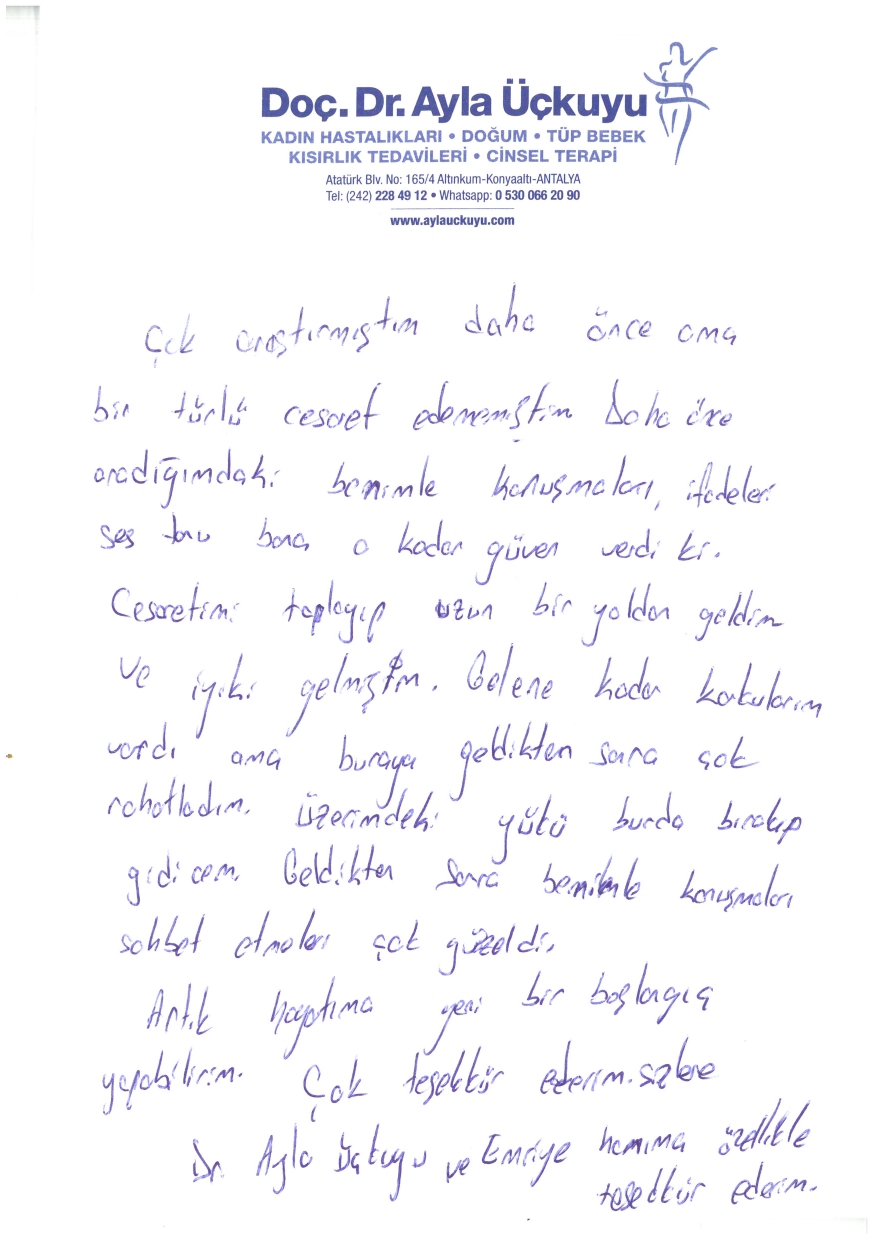 Doç. Dr. Ayla Üçkuyu
KADIN HASTALIKLARI • DOĞUM • TÜP BEBEK
KISIRLIK TEDAVİLERİ • CİNSEL TERAPİ
Atatürk Blv. No: 165/4 Altınkum-Konyaaltı-ANTALYA
Tel: (242) 228 49 12 • Whatsapp: 0 530 066 20 90
www.aylauckuyu.com
Çok araştırmıştım daha önce ama
bir türlü cesaret edememiştim Daha önce
aradığımdaki benimle konuşmaları, ifadeleri
ses tonu bana o kadar güven verdi ki.
Cesaretimi toplayıp uzun bir yoldan geldim
ve iyiki gelmiştim. Gelene kadar korkularım
vardı ama buraya geldikten sonra çok
rahatladım. üzerimdeki yükü burda bırakıp
gidicem. Geldikten sonra benimle konuşmaları
sohbet etmeleri çok güzeldi,
Artık hayatıma yeni bir başlangıç
yapabilirim. Çok teşekkür ederim. sizlere
Dr. Ayla Üçkuyu ve Emriye hanıma özellikle
teşekkür ederim.